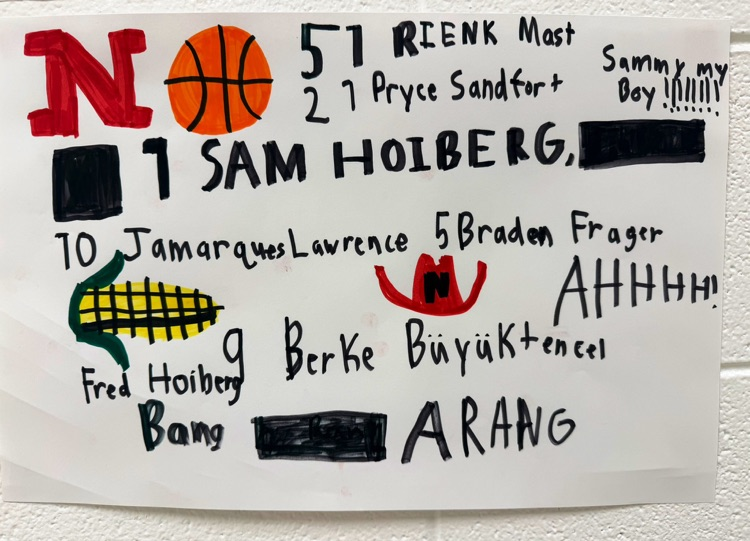 N
51 RIENK Mast
21 Pryce Sandfort
Sammy my
Boy !!!!!!!
1 SAM HOIBERG,
10 Jamarques Lawrence 5 Braden Frager
N
AHHHH!
9 Berke Büyüktencel
Fred Hoiberg
Bang ARANG